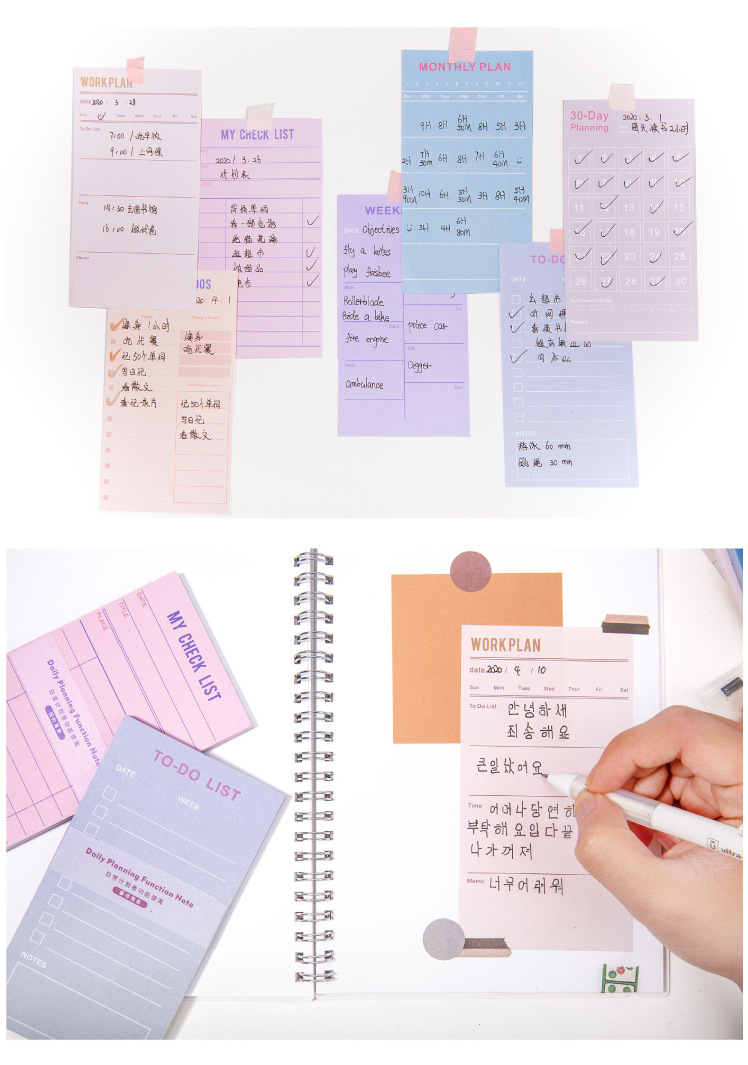 WORKPLAN
date 2020 / 3 / 28
Sun Tues Wed Thur Fri Sat
To Do List
7:00 /
9:00 / 上网课
Time
14:30 去图书馆
16:00
Memo
MY CHECK LIST
2020 / 3.26
计划表
背诵单词
看一部电影
逛超市
2020 4 1
健身 1小时
吃花菜
记50个单词
写日记
看散文
看记录片
健身
吃花菜
记50个单词
写日记
看散文
WEEK
DATE Objectives
fly a kites
play frisbee
Mon
Rollerblade
Ride a bike
fire engine
Wed
ambulance
Fri
police car
Sat
Digger
Sun
MONTHLY PLAN
1 2 3 4 5 6 7 8 9 10 11 12
Sun Mon Tues Wed Thur Fri Sat
9H 8H 6H 30m 8H 5H 3H
2H 7H 30m 6H 8H 7H 6H 40m
3H 10H 6H 5H 30m 3H 8H 5H 40m
3H 4H 6H
30-Day
Planning
2020 . 3 . 1
周天读书2小时
11 12 13 14 15
16 17 18 19 20
21 22 23 24 25
26 27 28 29 30
TO-DO
DATE
去超市
NOTES
游泳 60 min
跳绳 30 min
MY CHECK LIST
DATE
TITLE
PLACE
Daily Planning Function Note
日常计划者功能便笺
TO-DO LIST
DATE WEEK
Daily Planning Function Note
日常计划者功能便笺
NOTES
WORKPLAN
date 2020 / 4 / 10
Sun Mon Tues Wed Thur Fri Sat
To Do List 안녕하세
죄송해요
큰일났어요
Time 어머나당연하
부탁해요입다끝
나가꺼져
Memo 너무어려워
ultra